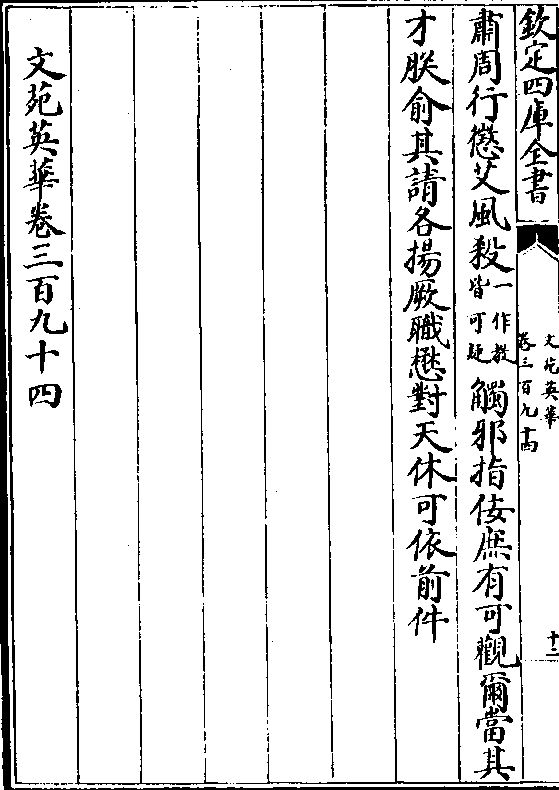 欽定四庫全書
文苑英華
卷三百九十四
十二
肅周行懲艾風殺一作教皆可疑觸邪指佞庶有可觀爾當其
才朕俞其請各揚厥職懋對天休可依前件
文苑英華卷三百九十四